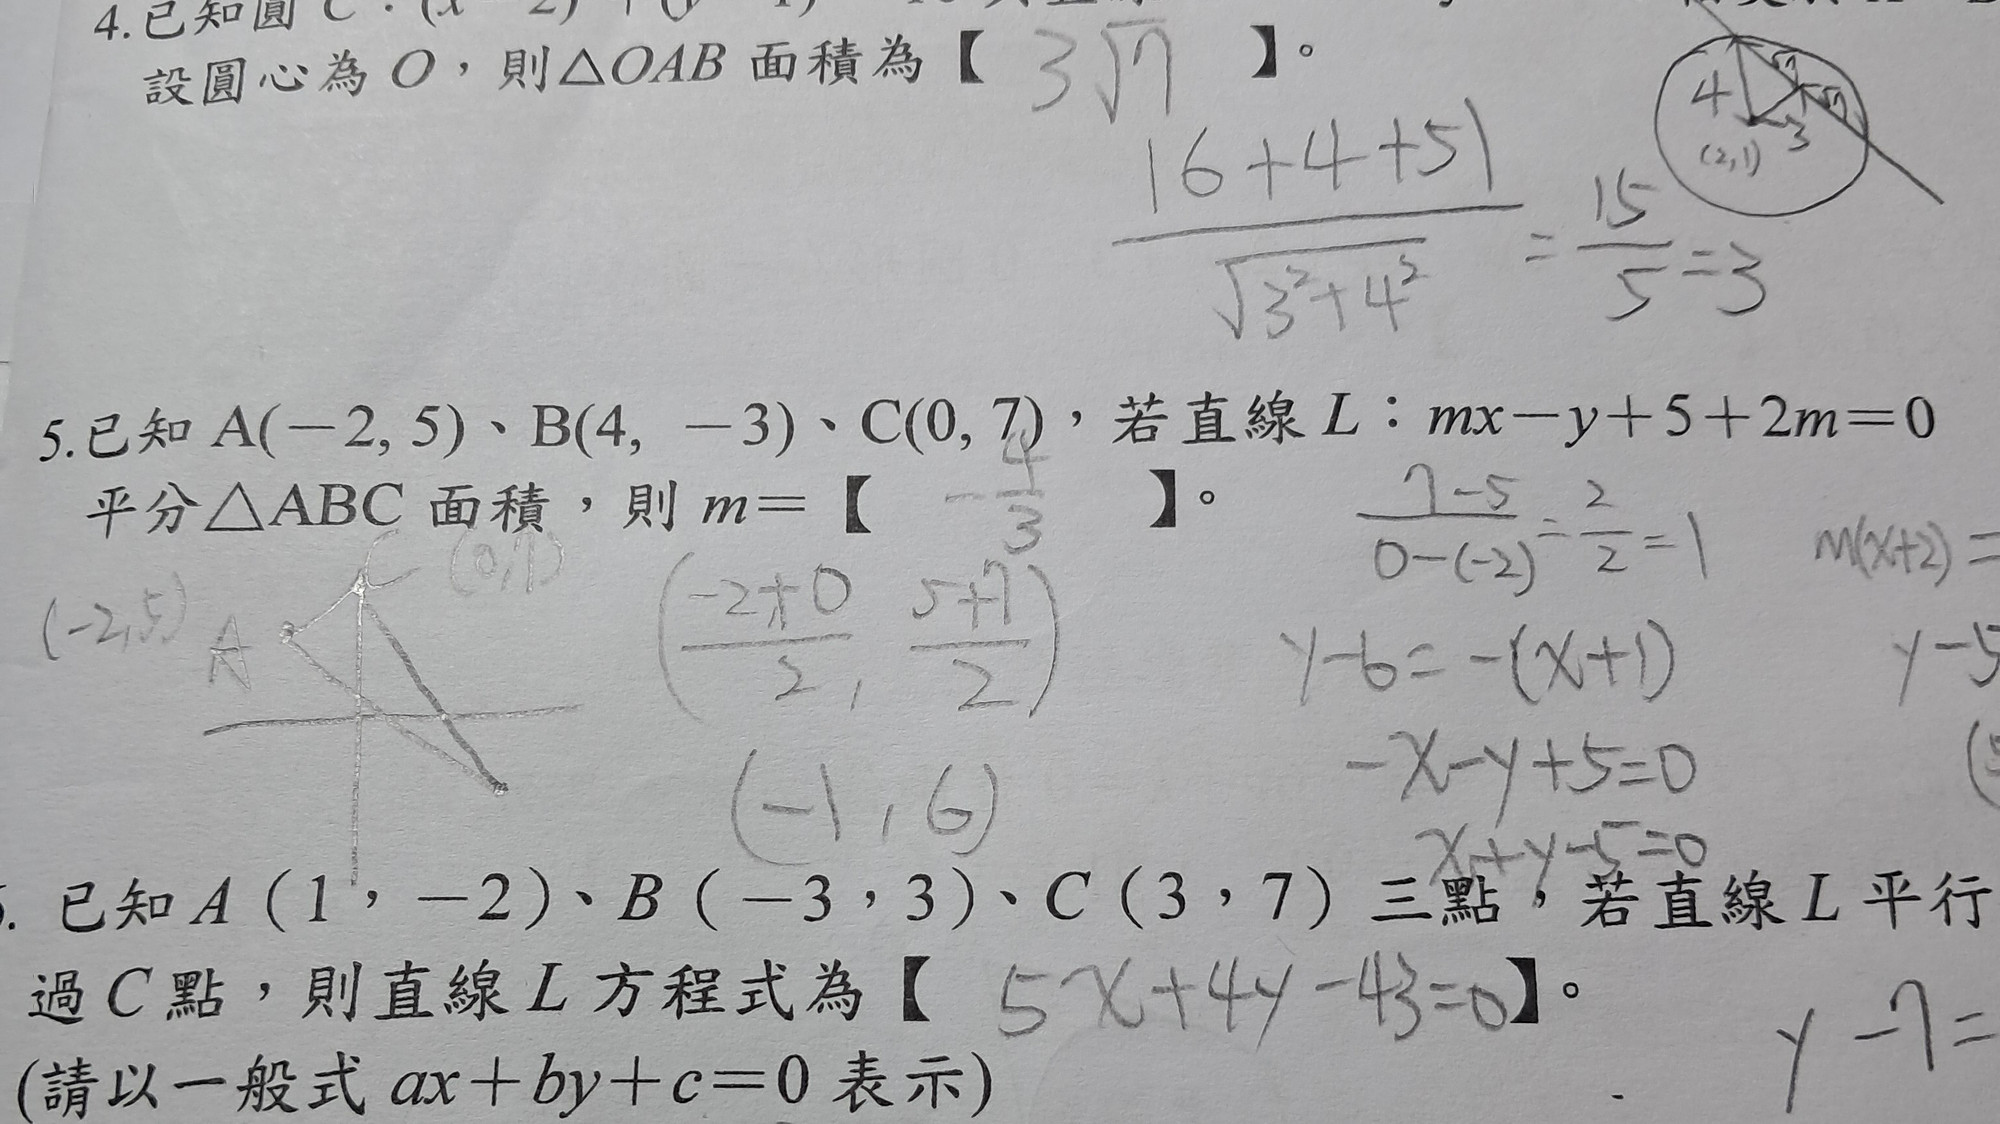 4.已知圓 C:(x-2)
設圓心為 O,則△OAB 面積為【 3√7 】。
4 √7 √7
(2,1) 3
|6+4+5| / √(3²+4²) = 15/5 = 3
5.已知 A(-2, 5)、B(4, -3)、C(0, 7),若直線 L:mx-y+5+2m=0
平分△ABC 面積,則 m=【 -4/3 】。
(7-5)/(0-(-2)) = 2/2 = 1 m(x+2)=
(-2,5) A C (0,7) ((-2+0)/2, (5+7)/2) y-6=-(x+1) y-5
(-1,6) -x-y+5=0
x+y-5=0
. 已知 A(1,-2)、B(-3,3)、C(3,7)三點,若直線 L 平行
過 C 點,則直線 L 方程式為【 5x+4y-43=0】。
y-7=
(請以一般式 ax+by+c=0 表示)